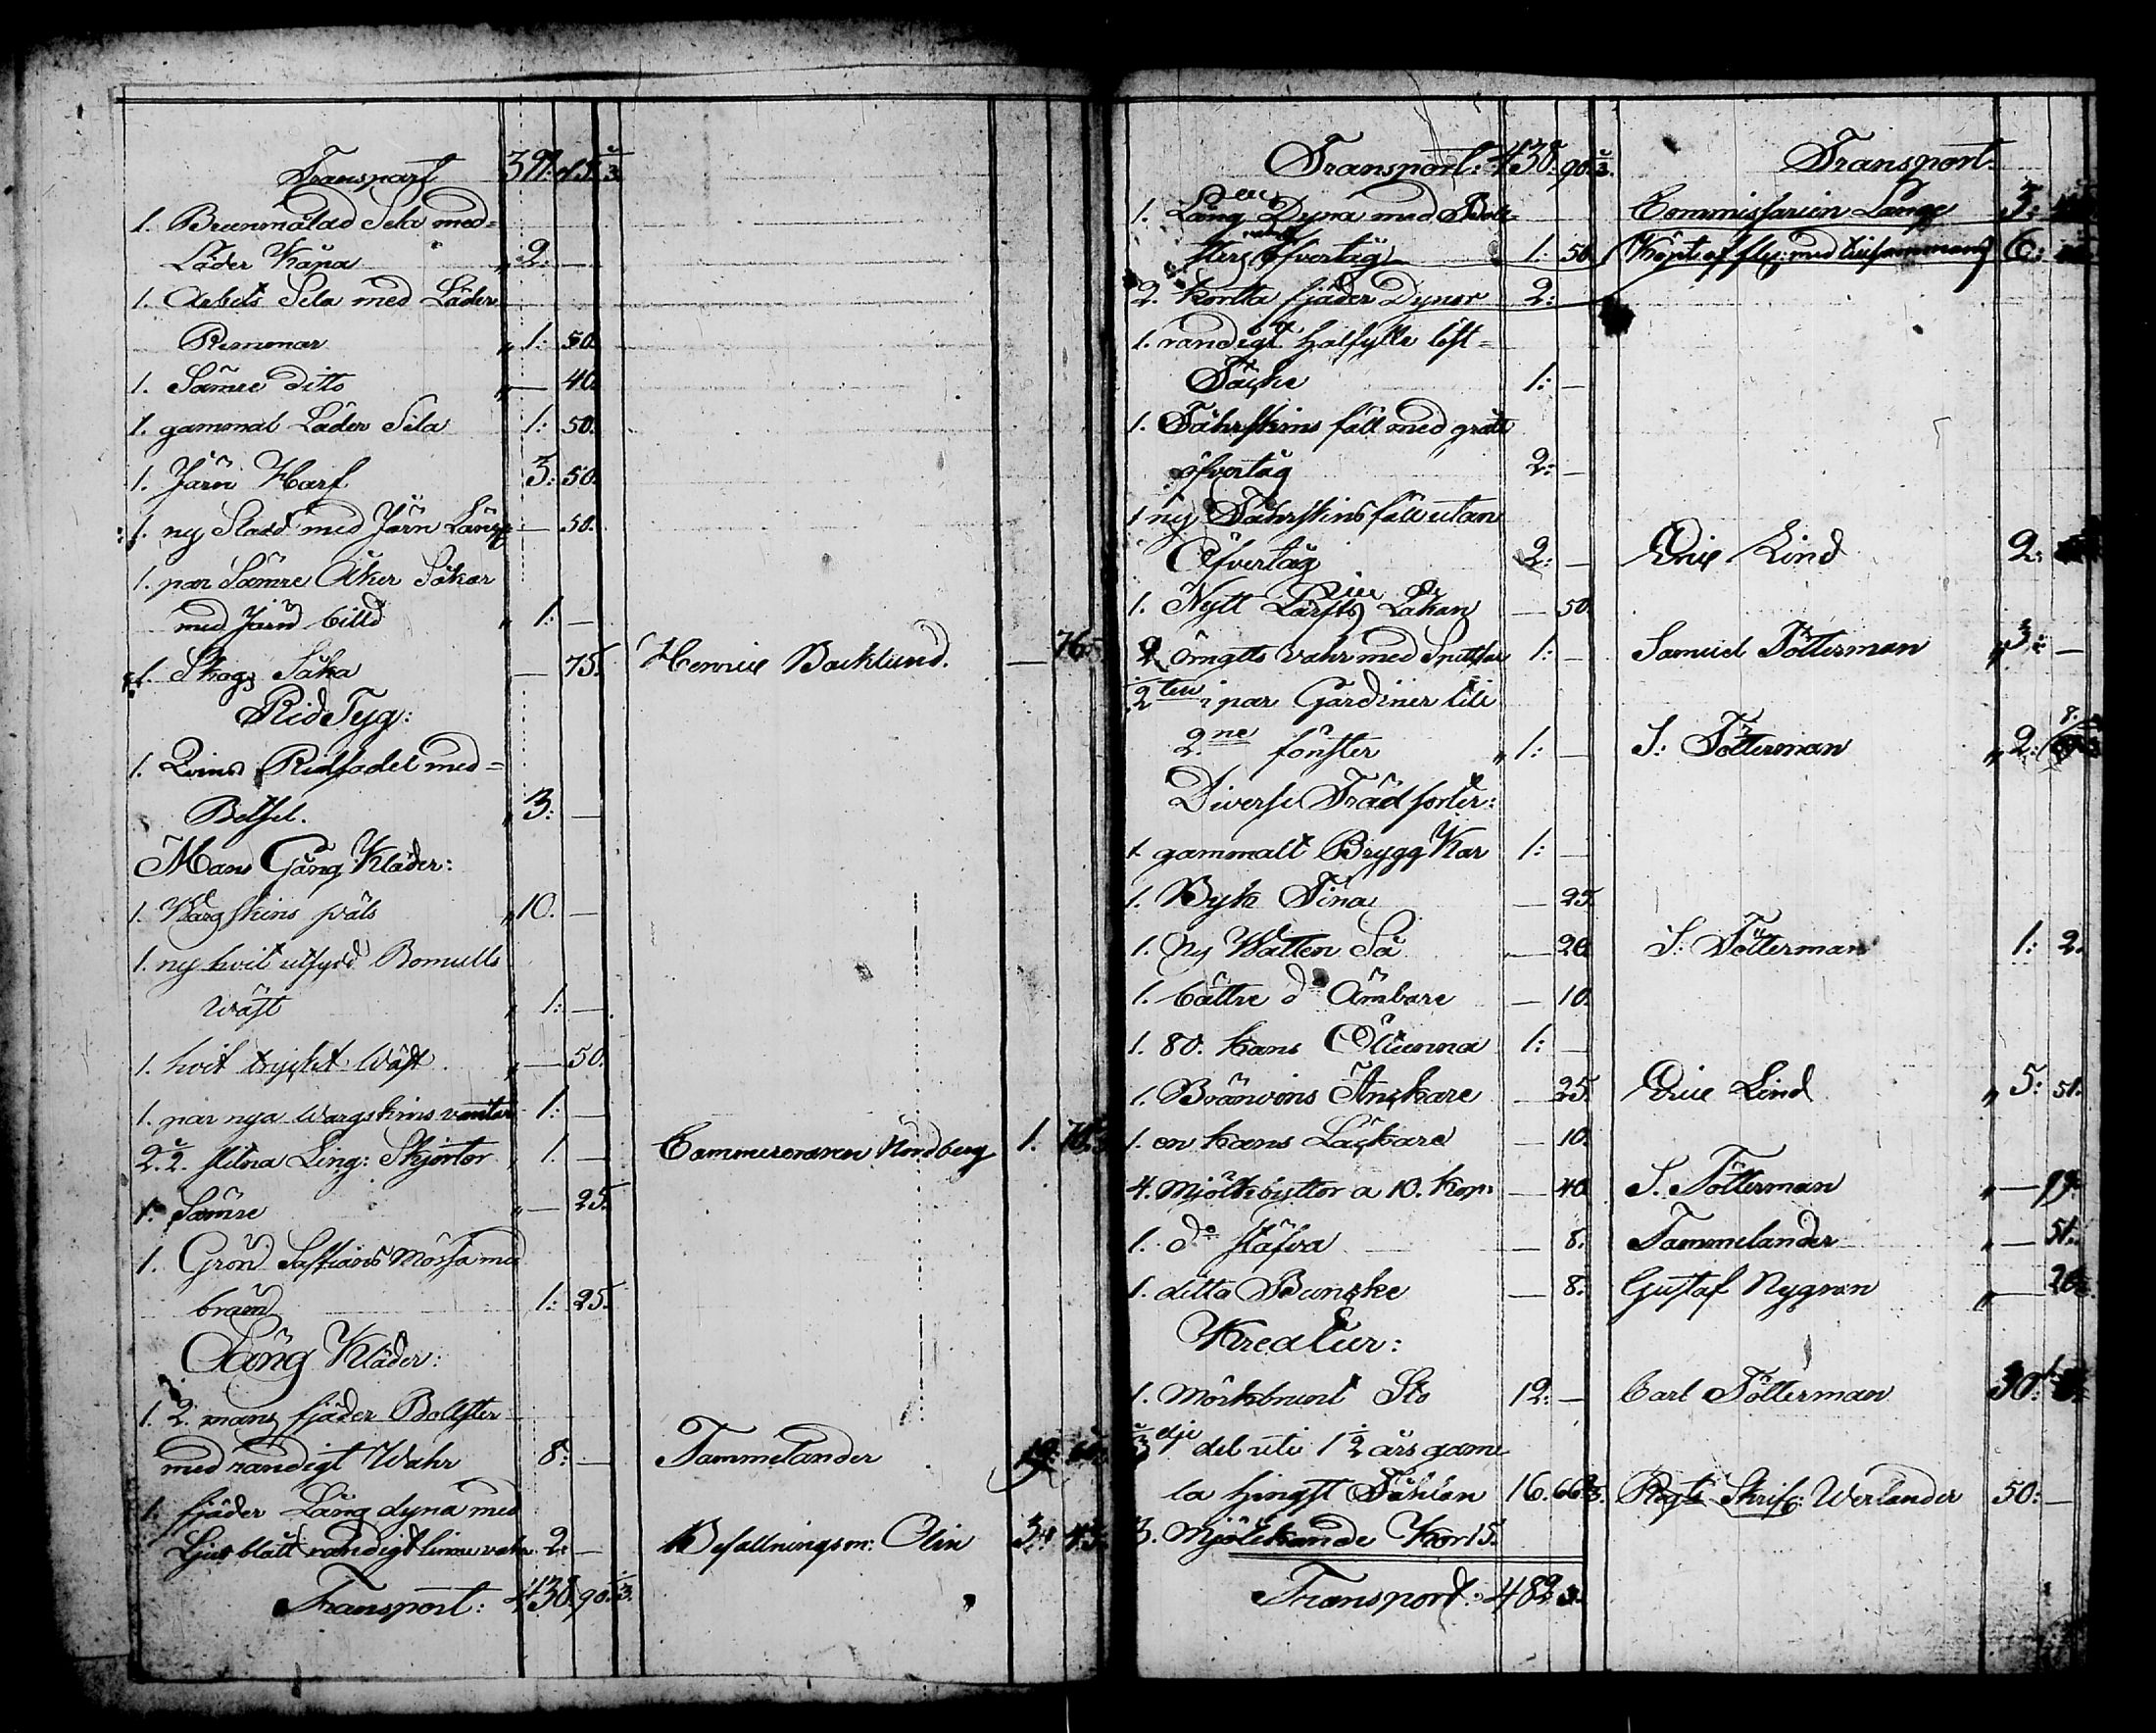 Transport 397. 15. 2/3.
1. Brunmålad Sela med=
Läder Kåpa „ 2: —
1. Arbets Sela med Läder
Remmar „ 1: 50.
1. Sämre ditto „ — 40.
1. gammal Läder Sela 1: 50.
1. Järn Harf 3: 50.
1. ny Släd med Järn — 50.
1. par Sämre Åker Såkar
med Järn billd „ 1: —
1. Skogs Såka — 75. Henric Backlund. — 76.
RidTyg:
1. Qvins Ridsadel med=
Betsel. „ 3: —
Mans Gång Kläder:
1. Wargskins päls „ 10. —
1. ny hvit utsydd Bomulls
Wäst „ 1: —
1. hvit tryckt Wäst „ — 50.
1. par nya Wargskins vantar 1: —
2. slitna Ling: Skjortor „ 1. — Cammereraren Nordberg 1.
1. Sämre „ — 25.
1. Grön Saffians Mössa med
bräm 1: 25.
Säng Kläder:
1. 2. mans fjäder Bolster
med randigt Wahr 8: — Tammelander
1. fjäder Lång dyna med
Ljus blått randigt linne vahr 2: — Befallningsm: Olin 3:
Transport: 438. 90. 2/3.
Transport: 438. 90. 2/3. Transport.
1. Lång Dyna med Bol=
sters öfvertåg 1: 50. Commissarien Lange 3:
Köpt af fly: med tillsammans 6:
2. kortta fjäder Dynor 2: —
1. randigt halfylle löst=
Täcke 1: —
1. Fåhrskins fäll med grått
öfvertåg 2: —
1 ny Fåhrskins fäll utan
Öfvertåg 2: — Eric Lind 2:
1. Nytt Lärfts Lakan — 50.
2. Örngotts vahr med Spittsar 1: — Samuel Tötterman „ 3: —
2 ten par Gardiner till
2. ne fönster „ 1: — S: Tötterman „ 2:
Diverse Trädsorter:
1 gammalt BryggKar 1: —
1. Byk Tina — 25.
1. Ny Watten Så — 20. S: Tötterman 1: 2.
1. bättre do Ämbare — 10.
1. 80. kans Öltunna 1: —
1. Bränvins Ankare — 25. Eric Lind „ 5: 51.
1. en kans Läckare — 10.
4. Mjölkbyttor a 10. Kop: — 40. S. Tötterman „ — 99.
1. do stäfva — 8. Tammelander „ — 51.
1. ditto Buncke — 8. Gustaf Nygren „ — 20.
Kreatur:
1. Mörkbrunt Sto 12: — Carl Tötterman 30:
2/3 dje del uti 1 1/2 års gam=
la hingst Fåhlen 16. 66 2/3. Regts Skrif: Werlander 50: —
3. Mjölkande Kor 15.
Transport: 482